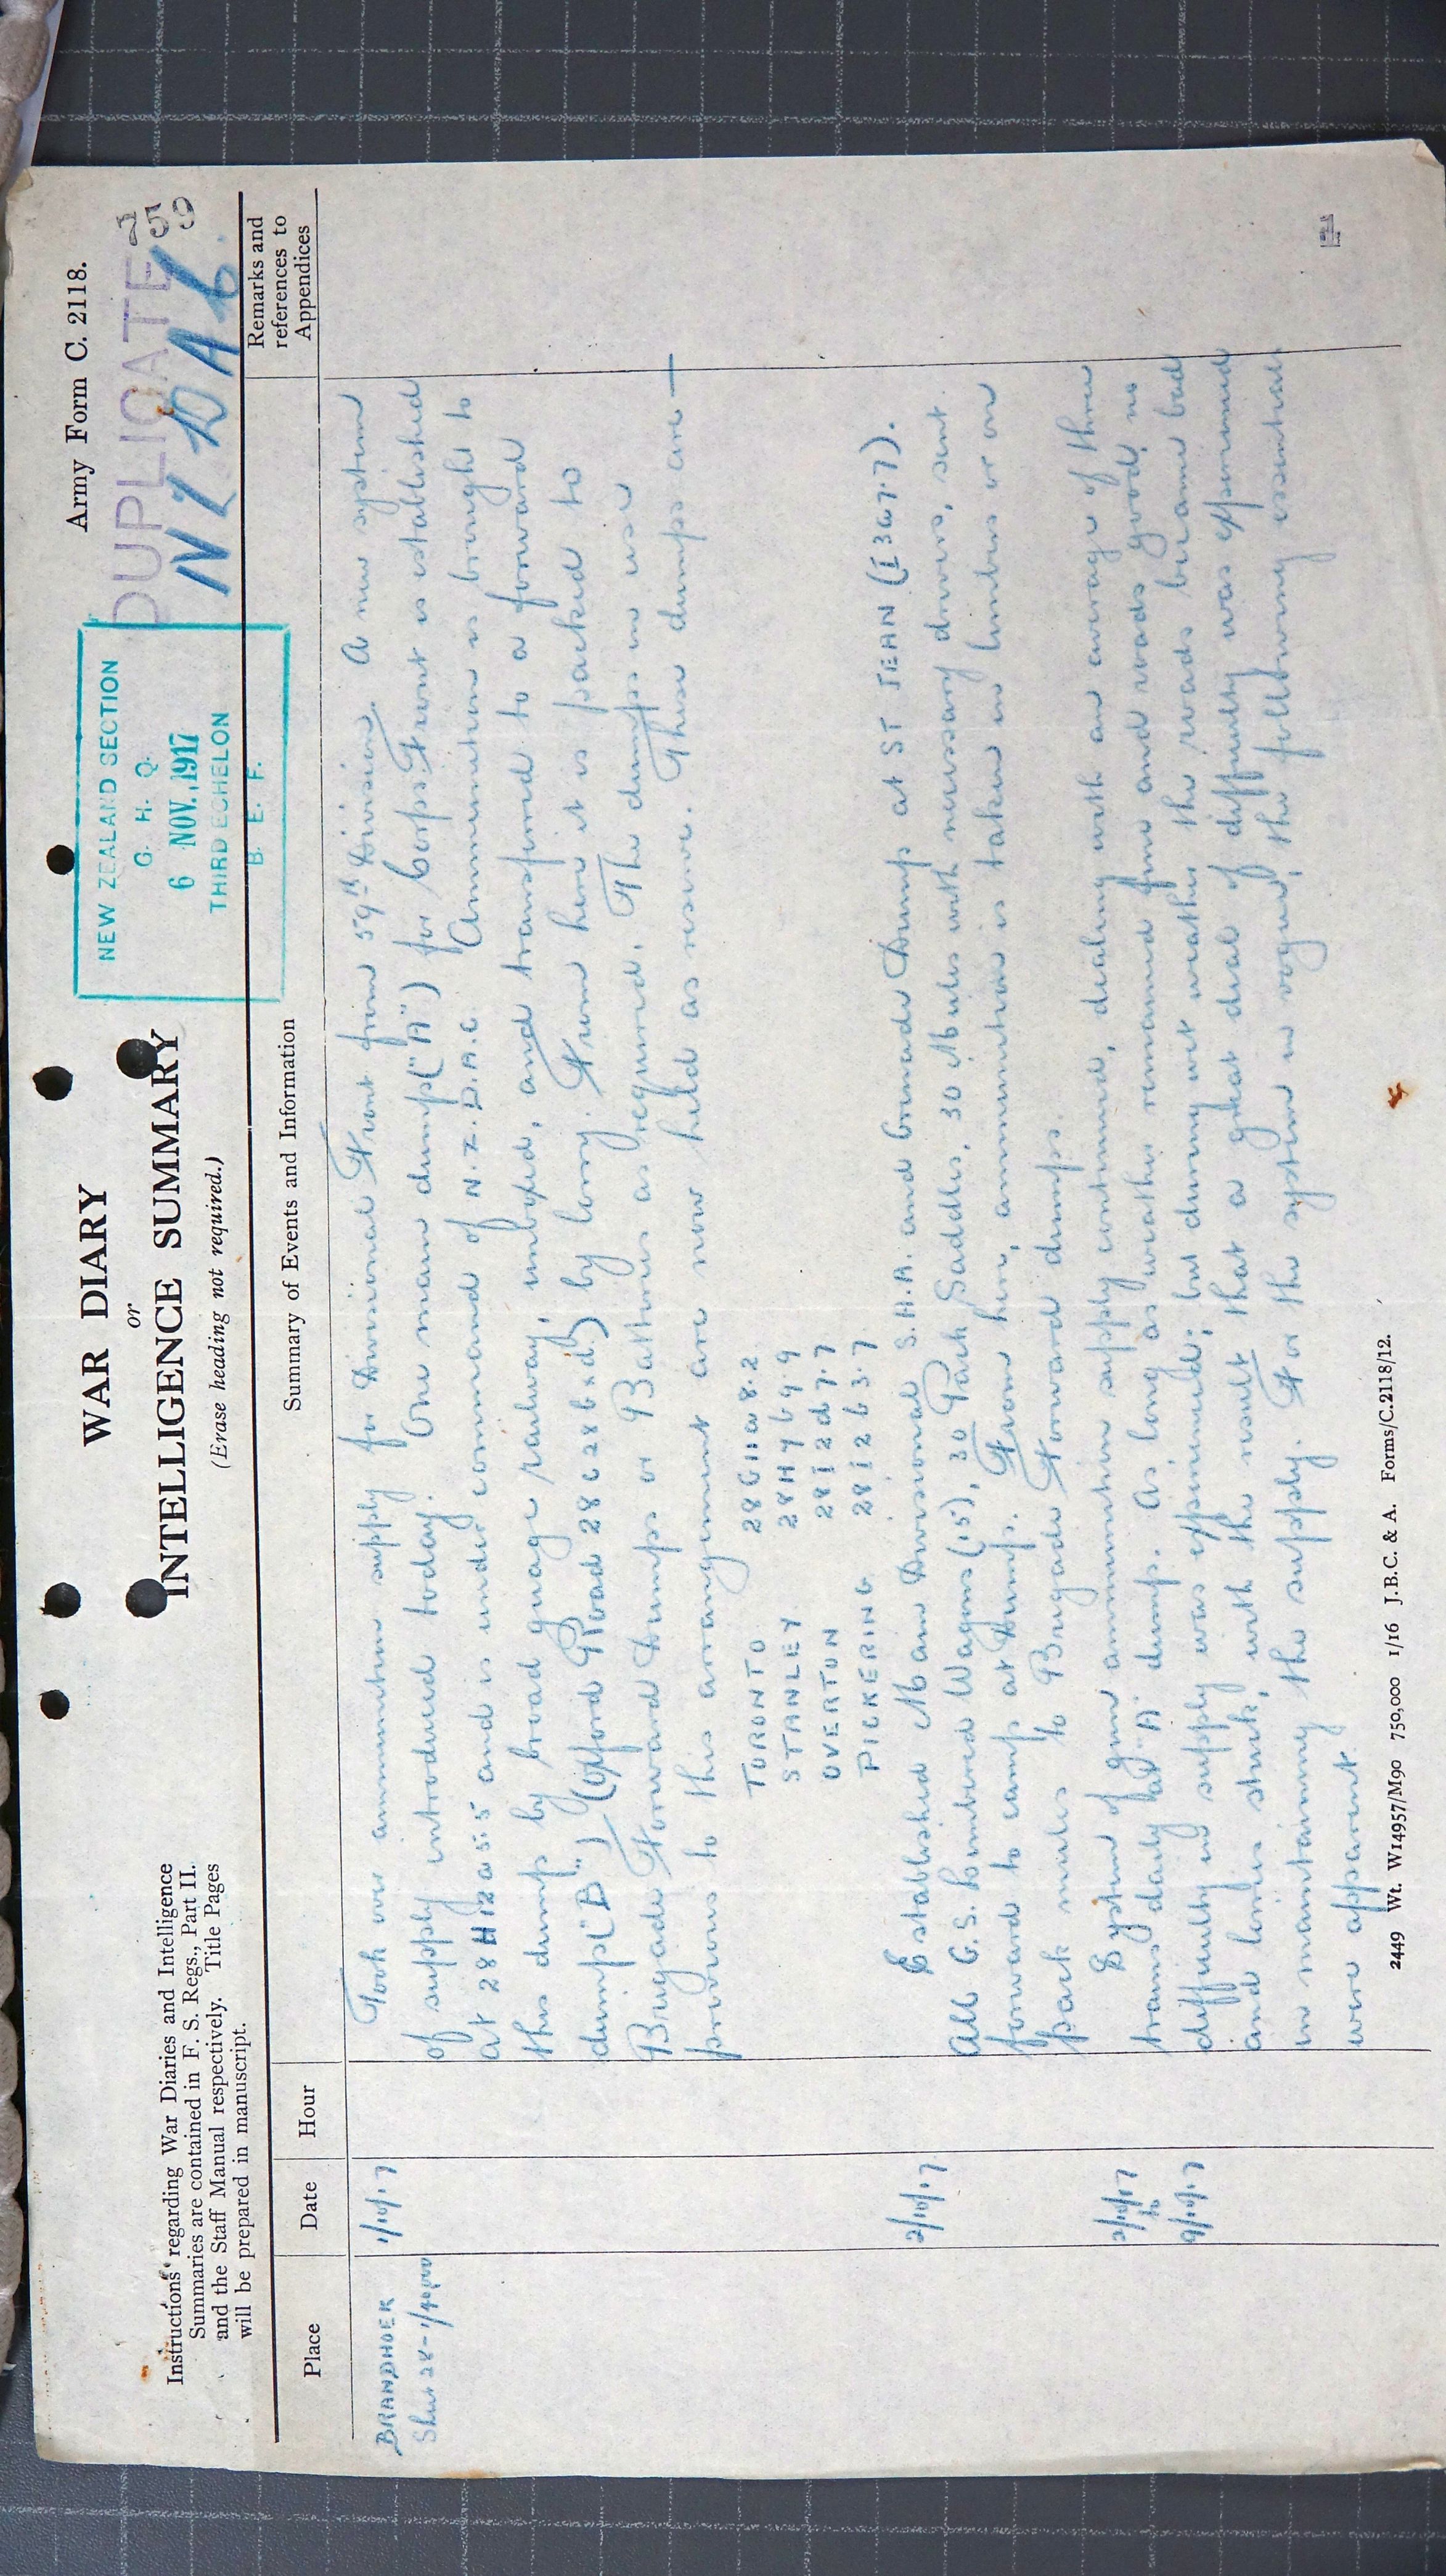 Army Form C. 2118.
WAR DIARY
or
INTELLIGENCE SUMMARY
(Erase heading not required.)
Instructions regarding War Diaries and Intelligence
Summaries are contained in F. S. Regs., Part II.
and the Staff Manual respectively. Title Pages
will be prepared in manuscript.
NEW ZEALAND SECTION
G. H. Q.
6 NOV. 1917
THIRD ECHELON
B. E. F.
DUPLICATE
259
NZDAC
Place
Date
Hour
Summary of Events and Information
Remarks and
references to
Appendices
BRANDHOEK
Sheet 28-1/40000
1/10/17
Took over ammunition supply for Divisional Front from 59th Division. A new system
of supply introduced today. One main dump ("A") for Corps Front is established
at 28 H 12 a 5.5 and is under command of N.Z.D.A.C. Ammunition is brought to
this dump by broad guage railway, unloaded, and transferred to a forward
dump ("B") (Oxford Road 28 C 28 b & d) by lorry. From here it is packed to
Brigade Forward Dumps or Batteries as required. The dumps in use
previous to this arrangement are now held as reserve. These dumps are —
TORONTO 28 G 11 a 8.2
STANLEY 28 H 7 b 9.9
OVERTON 28 I 2 d 7.7
PICKERING 28 I 2 b 3.7
2/10/17
Established Main Divisional S.A.A. and Grenade Dump at ST JEAN (I 3 a 7.7).
All G.S. Limbered Wagons (15), 30 Pack Saddles, 30 Mules with necessary drivers, sent
forward to camp at Dump. From here, ammunition is taken in limbers or on
pack mules to Brigade Forward dumps.
2/10/17
to
9/10/17
System of gun ammunition supply continued, dealing with an average of three
trains daily at "A" dump. As long as weather remained fine and roads good, no
difficulty in supply was experienced; but during wet weather the roads became bad
and lorries stuck, with the result that a great deal of difficulty was experienced
in maintaining the supply. For the system in vogue, the following essentials
were apparent.
1
2449 Wt. W14957/M90 750,000 1/16 J.B.C. & A. Forms/C.2118/12.